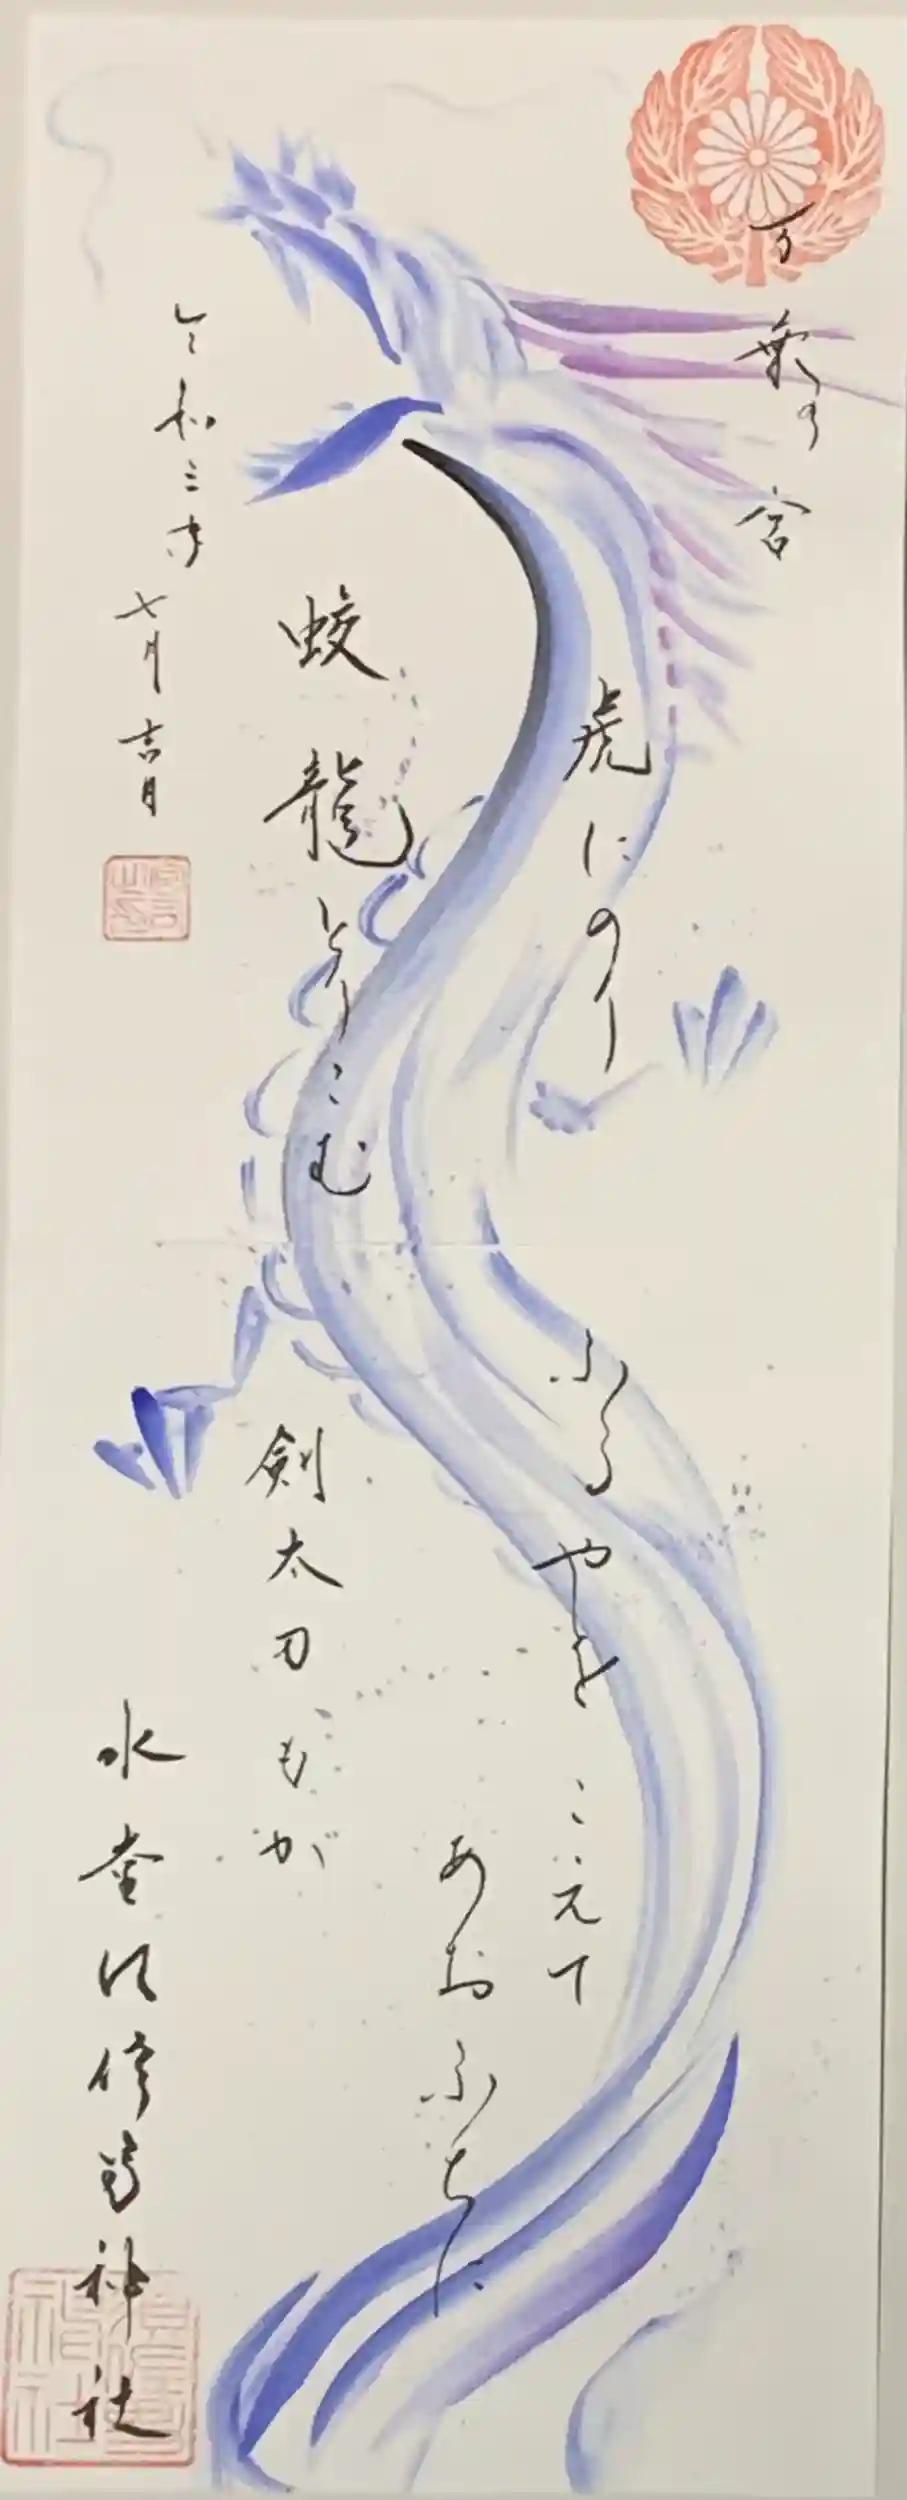 万葉の宮
虎にのり ふるやを こえて
あおふちに
蛟龍とりこむ 剣太刀もが
令和三年七月吉日
水堂須佐男神社